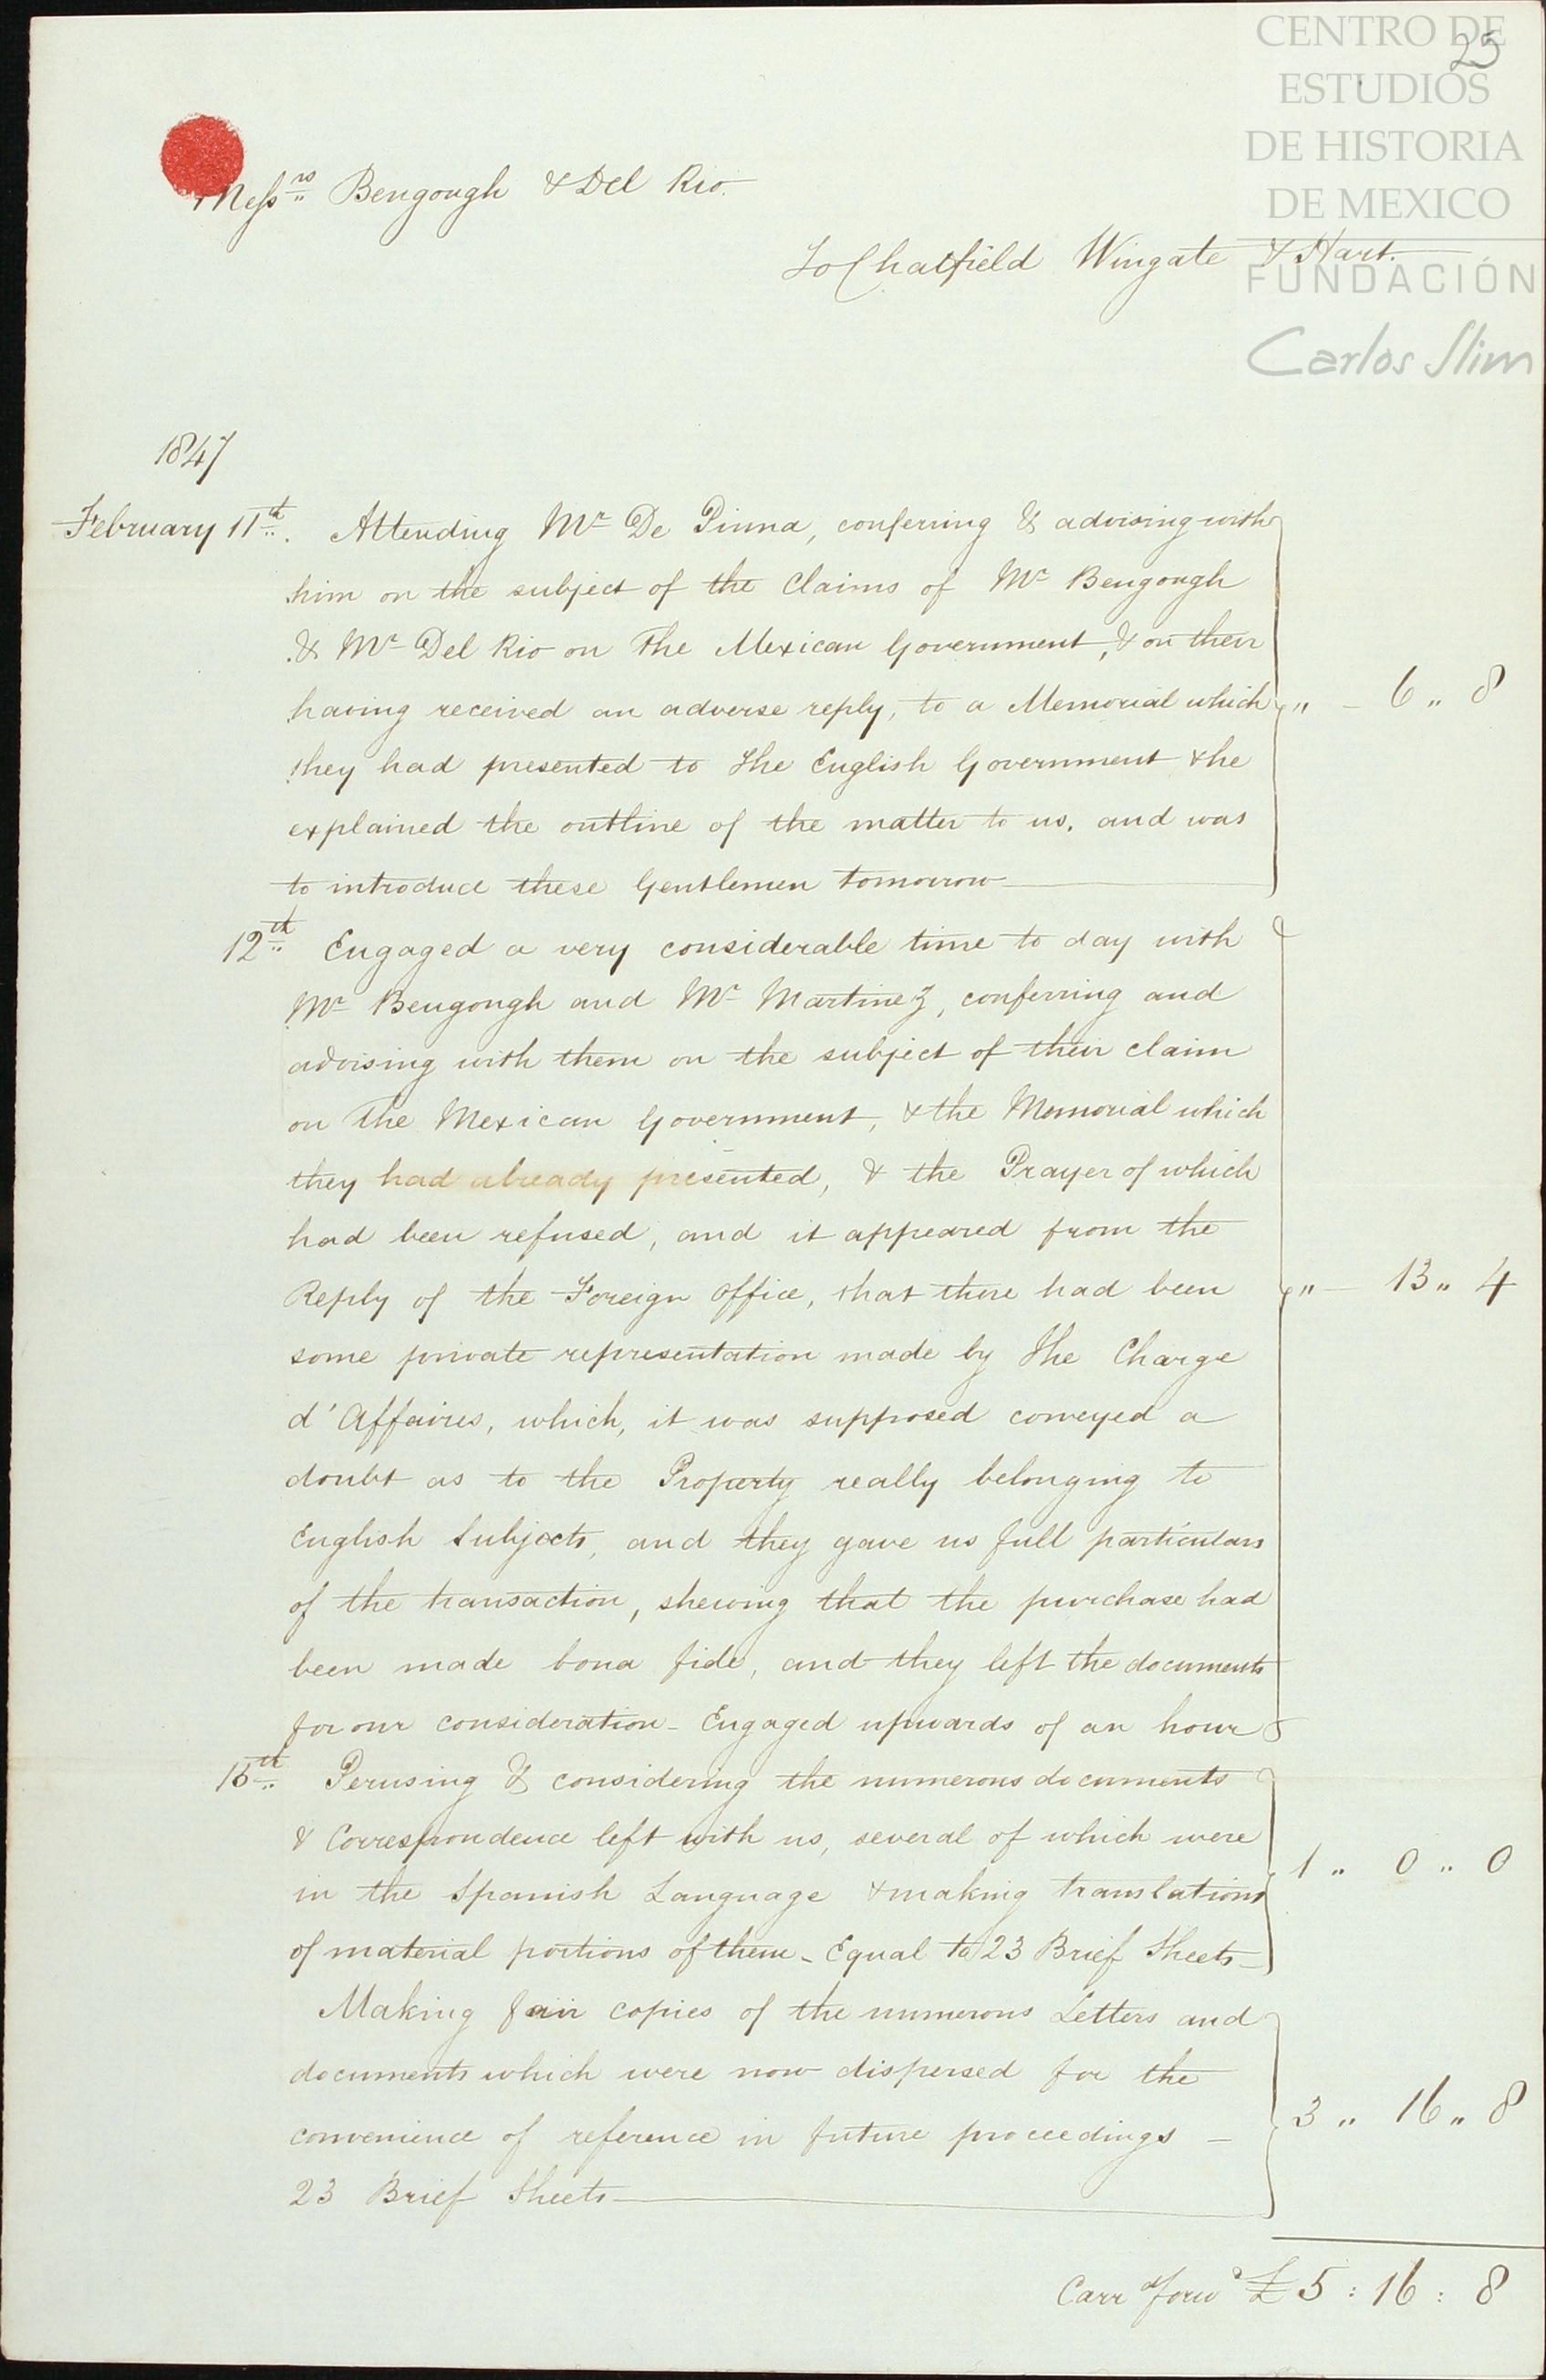 CENTRO DE
ESTUDIOS
DE HISTORIA
DE MEXICO
FUNDACIÓN
Carlos Slim
25
Messrs Bengough & Del Rio
To Chatfield Wingate & Hart.
1847
February 11th. Attending Mr De Pinna, conferring & advising with
him on the subject of the Claims of Mr Bengough
& Mr Del Rio on The Mexican Government, & on their
having received an adverse reply, to a Memorial which
they had presented to The English Government & he
explained the outline of the matter to us, and was
to introduce these Gentlemen tomorrow
" - 6 " 8
12th Engaged a very considerable time to day with
Mr Bengough and Mr Martinez, conferring and
advising with them on the subject of their claim
on The Mexican Government, & the Memorial which
they had already presented, & the Prayer of which
had been refused, and it appeared from the
Reply of the Foreign Office, that there had been
some private representation made by The Charge
d'Affaires, which, it was supposed conveyed a
doubt as to the Property really belonging to
English Subjects, and they gave us full particulars
of the transaction, shewing that the purchase had
been made bona fide, and they left the documents
for our consideration - Engaged upwards of an hour
" - 13 " 4
15th Perusing & considering the numerous documents
& Correspondence left with us, several of which were
in the Spanish Language & making translations
of material portions of them - Equal to 23 Brief Sheets
1 " 0 " 0
Making fair copies of the numerous Letters and
documents which were now dispersed for the
convenience of reference in future proceedings -
23 Brief Sheets
3 " 16 " 8
Carrd forwd £5 : 16 : 8